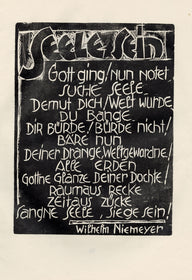 Seele sein
Gott ging / nun notet
suche Seele
Demut Dich / Welt wurde
Du Bange
Dir Bürde / Bürde nicht /
Bäre nun
Deiner Drange, Weltgewordne /
Alle Erden
Gothe Glänze Deiner Dochte /
Raumaus Recke
Zeitaus Zücke
Sangne Seele, Siege sein!
Wilhelm Niemeyer